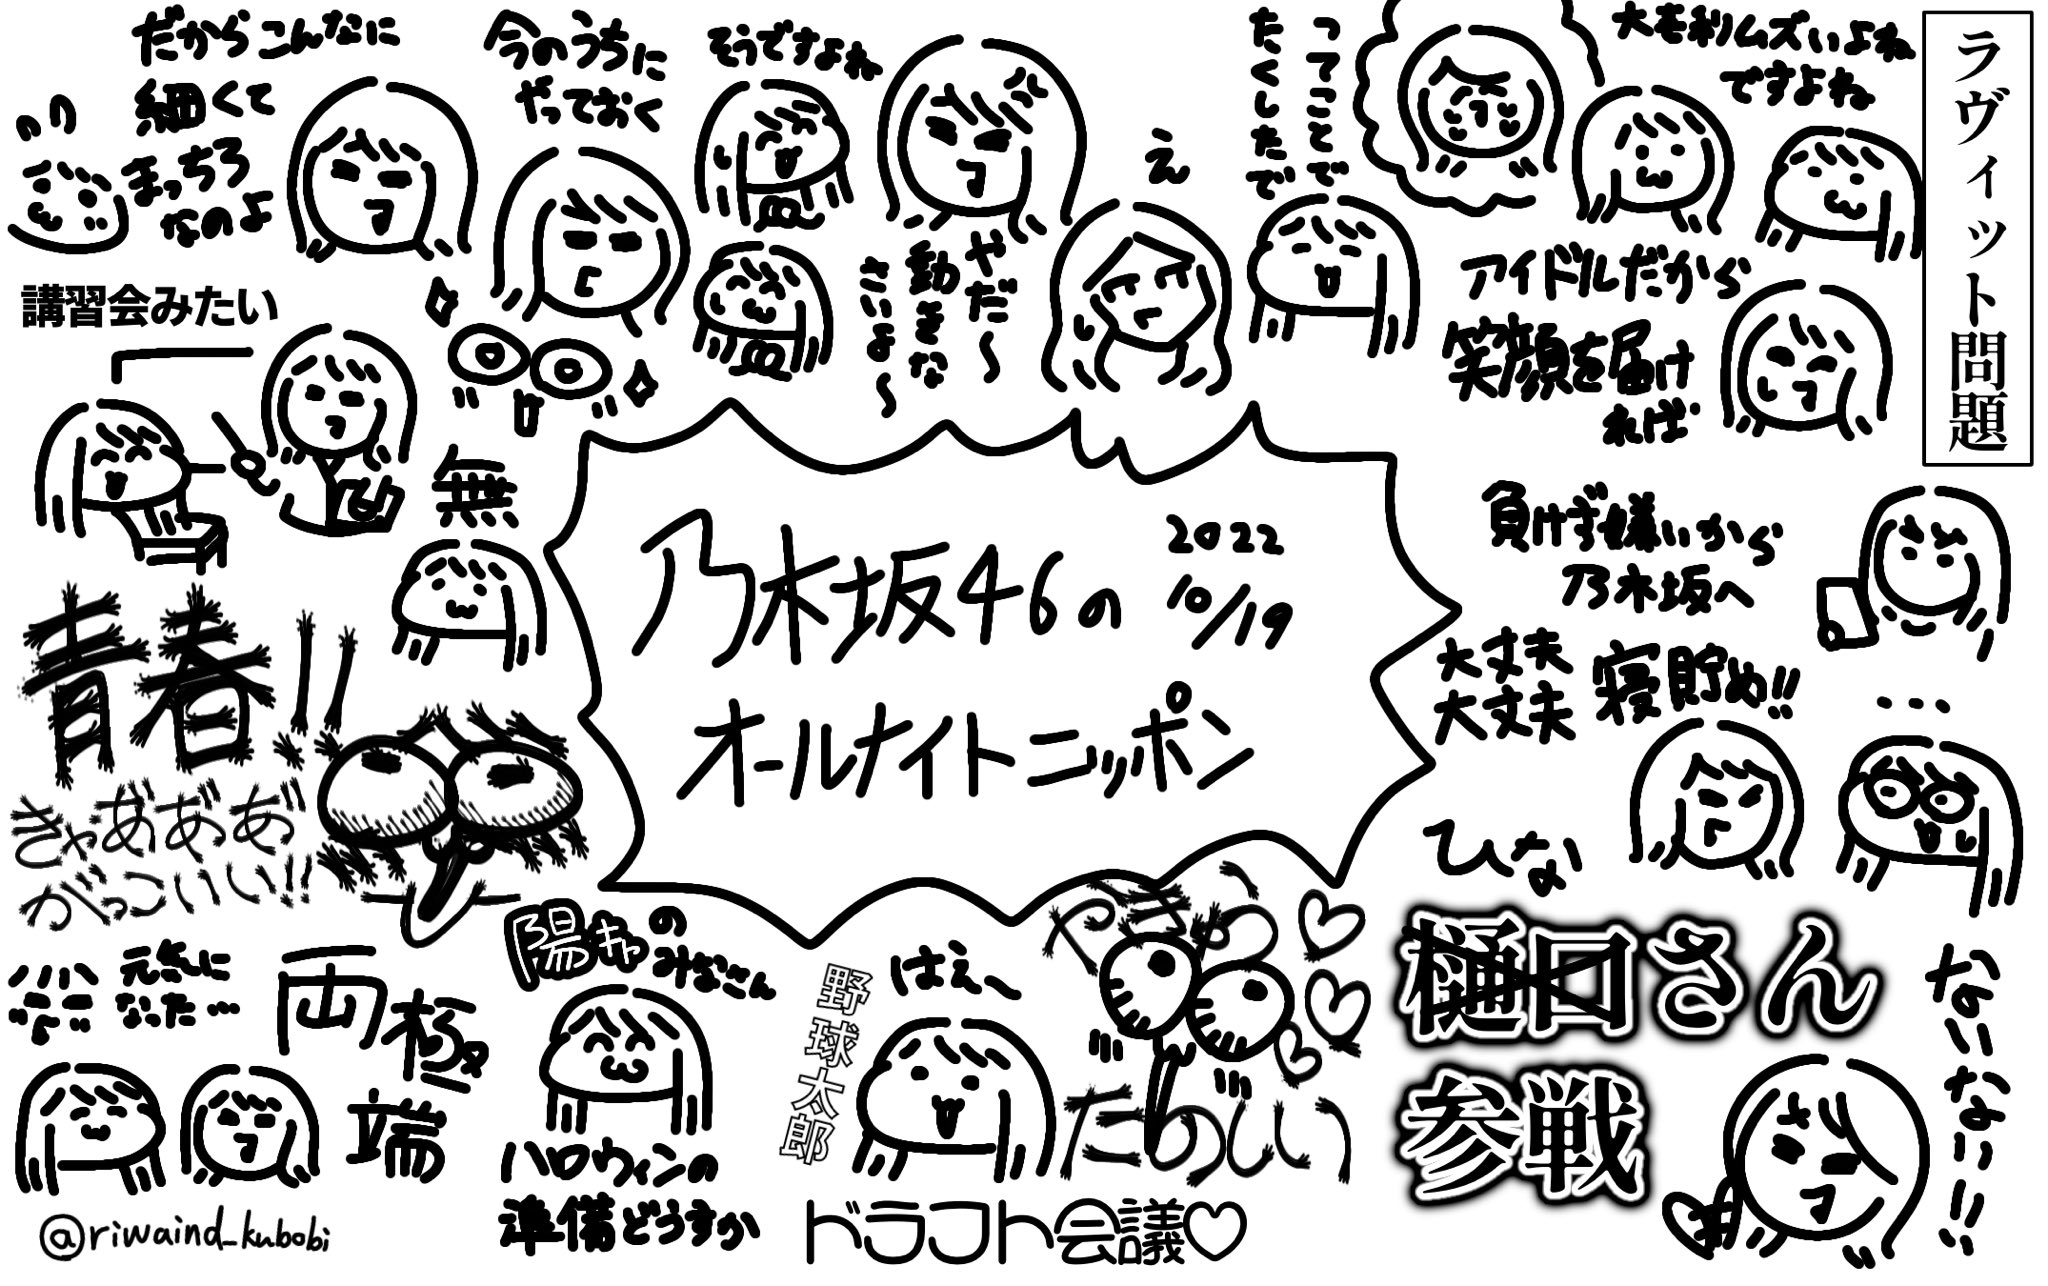 だからこんなに
細くて
まっちろ
なのよ
今のうちに
やっておく
そうですよね
やだ〜
動きな
さいよ〜
え
ってことで
たくしたで
大喜利ムズいよね
ですよね
ラヴィット問題
アイドルだから
笑顔を届け
れば
講習会みたい
無
青春!!
きゃあああ
がっこいい!!
乃木坂46の
オールナイトニッポン
2022
10/19
負けず嫌いから
乃木坂へ
大丈夫
大丈夫
寝貯め!!
...
ひな
樋口さん
参戦
ないない!!
元気に
なった…
両極端
陽キャのみなさん
ハロウィンの
準備どうすか
野球太郎
はえ〜
やきゅう♡
たのしい
ドラフト会議♡
@riwaind_kubobi